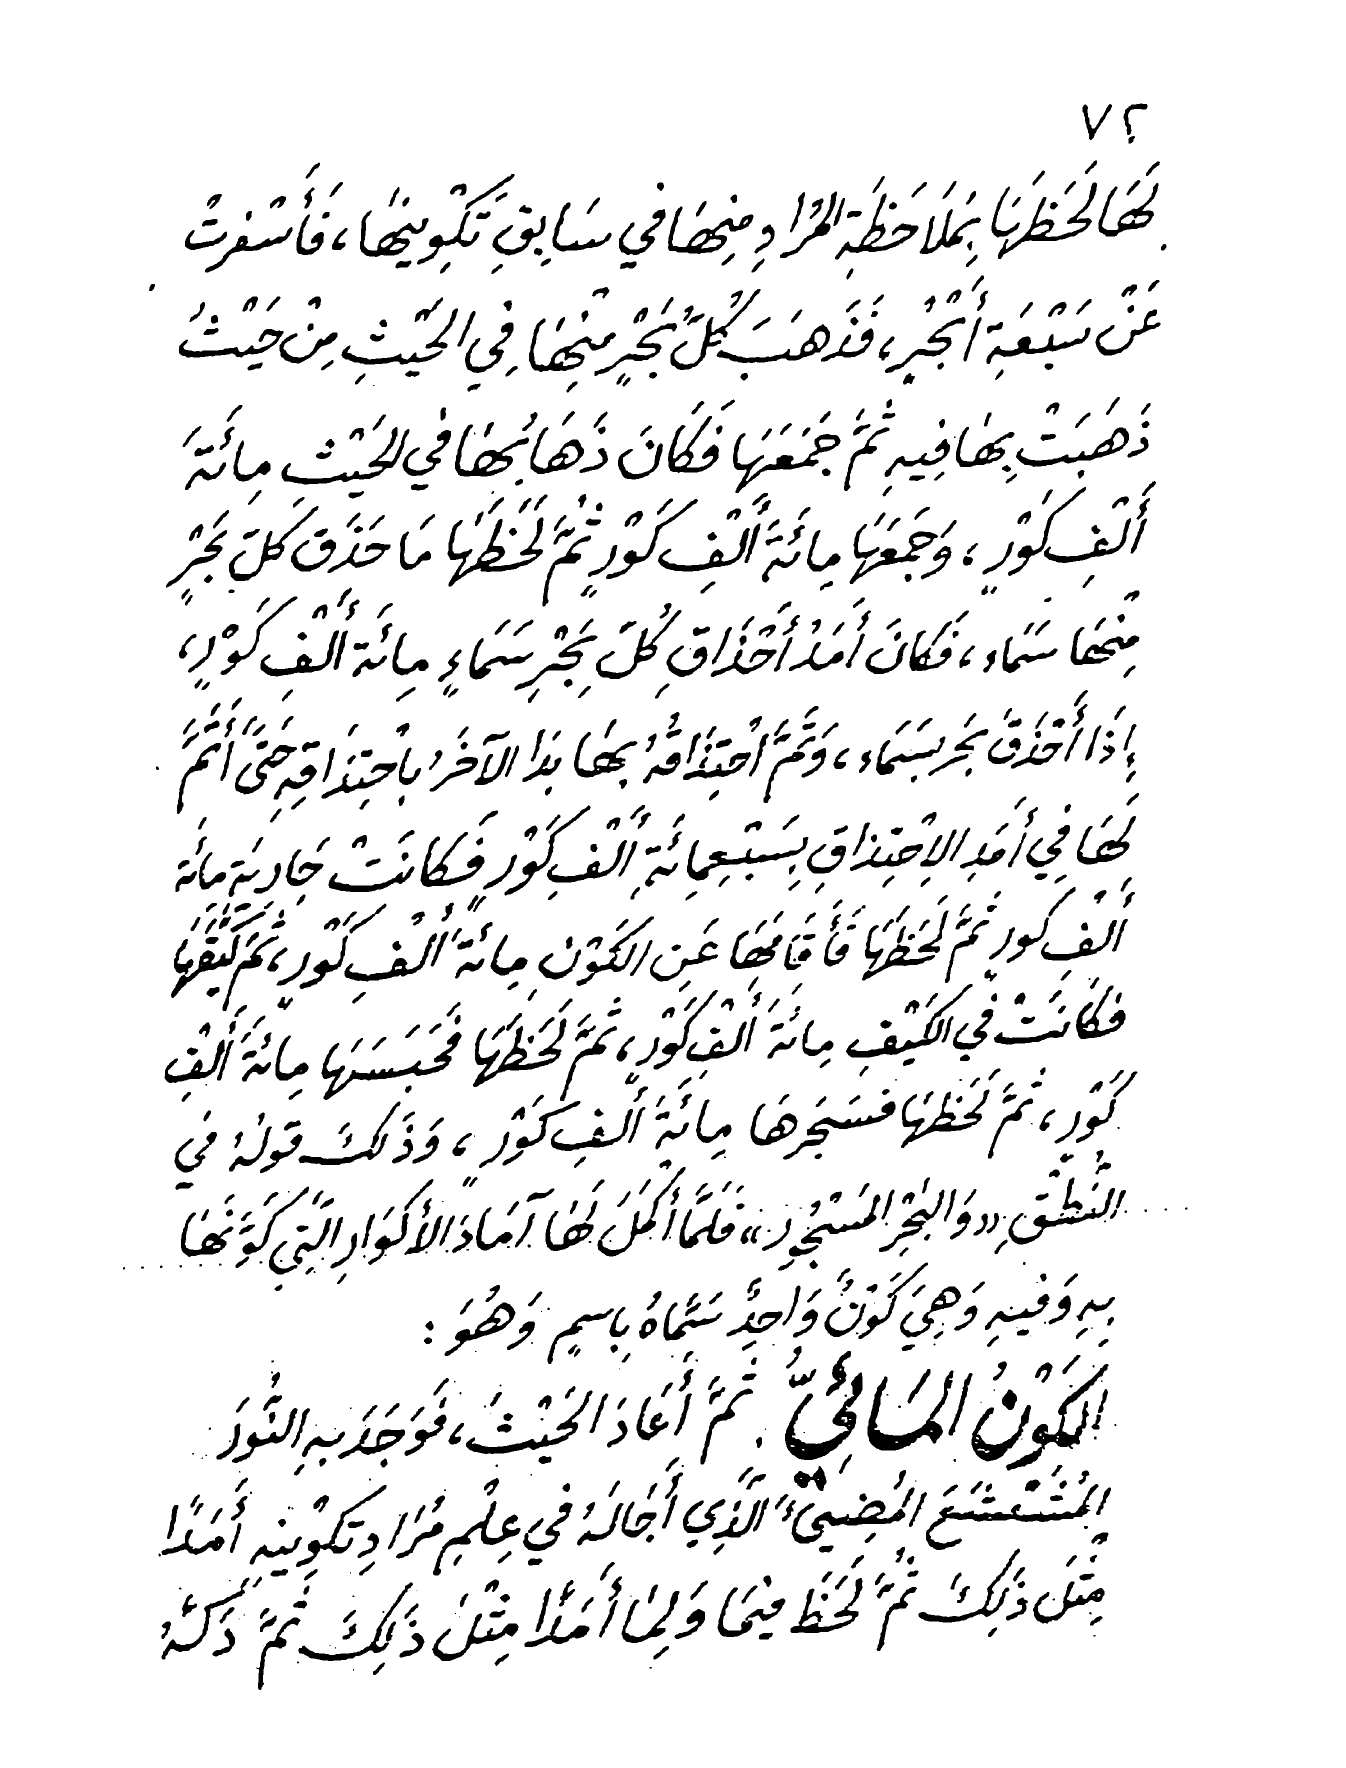 ٧٢
لَهَا لَحَظَهَا بِمَلَاحَظَةِ المُرَادِ مِنهَا في سَابِقِ تَكْوِينِهَا، فَأَسْفَرتْ
عَنْ سَبْعَةِ أَبْحُرٍ، فَذَهَبَ كُلُّ بَحْرٍ مِنْهَا فِي الحَيْثِ مِنْ حَيْثُ
ذَهَبَتْ بِهَا فِيهِ ثُمَّ جَمَعَهَا فَكَانَ ذَهَابُهَا في الحَيْثِ مِائَةَ
أَلْفِ كَوْرٍ، وَجَمَعَهَا مِائَةَ أَلْفِ كَوْرٍ ثُمَّ لَحَظَهَا مَا حَذَقَ كلّ بَحْرٍ
مِنْهَا سَمَاء، فَكَانَ أَمَدُ أَحْذَاقِ كُلِّ بَحْرِ سَمَاءٍ مِائَةَ أَلْفِ كَوْرٍ،
إِذَا أَحْذَقَ بَحر بسَمَاء، وَتَمَّ احْتِذَاقُهُ بهَا بَدَا الآخَرُ باحْتِذَاقِهِ حَتَّى أَتَمَّ
لَهَا فِي أَمَدِ الاِحْتِذاقِ بِسَبْعِمِائَةِ أَلْفِ كَوْرٍ فَكانَتْ جَارِيَةِ مِائَة
أَلْفِ كَورٍ ثُمَّ لَحَظَهَا فَأَقَامَهَا عَنِ الكَوْنِ مِائَةَ أَلْفِ كَوْرٍ، ثُمَّ كَيَّفَهَا
فَكَانَتْ في الكَيْفِ مِائَةَ أَلْفِ كَوْرٍ، ثُمَّ لَحَظَهَا فَحَبَسَهَا مِائَةَ أَلْفِ
كَوْرٍ، ثُمَّ لَحَظَهَا فَسَجَرهَا مِائَةَ أَلْفِ كَوْرٍ، وَذَلكَ قولُهُ في
النُّطْقِ «وَالبَحْرِ المَسْجُورِ» فَلَمَّا أَكْمَلَ لَهَا آمَادَ الأَكْوَارِ الَّتِي كَوَّنَهَا
بِهِ وَفيهِ وَهِيَ كَوْنٌ وَاحِدٌ سَمَّاهُ بِاسمٍ وَهُوَ:
الكَوْنُ المَائِيُّ. ثُمَّ أَعَادَ الحَيْثَ، فَوَجَدَ بهِ النُّورَ
المُشَعْشَعَ المُضِيىءَ الَّذِي أَجَالَهُ في عِلْمِ مُرَادِ تَكْوِينِهِ أَمَدًا
مِثْلَ ذَلِكَ ثُمَّ لَحَظَ فيمَا وَلِمَا أَمَدًا مِثْلَ ذَلِكَ ثُمَّ دَكَّهُ